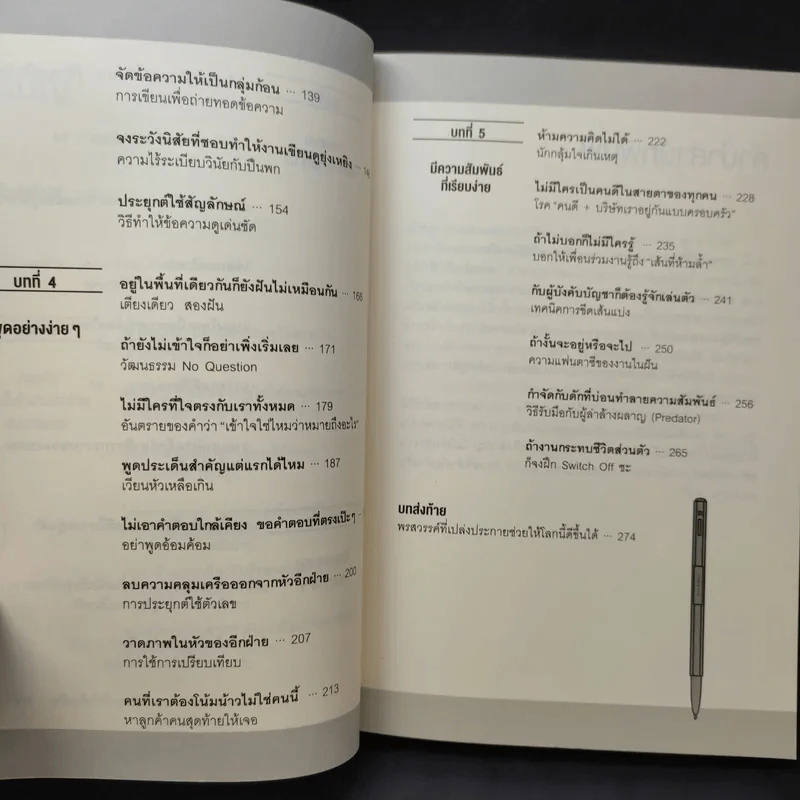 จัดข้อความให้เป็นกลุ่มก้อน ··· 139
การเขียนเพื่อถ่ายทอดข้อความ
จงระวังนิสัยที่ชอบทำให้งานเขียนดูยุ่งเหยิง
ความไร้ระเบียบวินัยกับปืนพก
ประยุกต์ใช้สัญลักษณ์ ··· 154
วิธีทำให้ข้อความดูเด่นชัด
บทที่ 4
พูดอย่างง่าย ๆ
อยู่ในพื้นที่เดียวกันก็ยังฝันไม่เหมือนกัน ··· 166
เตียงเดียว สองฝัน
ถ้ายังไม่เข้าใจก็อย่าเพิ่งเริ่มเลย ··· 171
วัฒนธรรม No Question
ไม่มีใครที่ใจตรงกับเราทั้งหมด ··· 179
อันตรายของคำว่า "เข้าใจใช่ไหมว่าหมายถึงอะไร"
พูดประเด็นสำคัญแต่แรกได้ไหม ··· 187
เวียนหัวเหลือเกิน
ไม่เอาคำตอบใกล้เคียง ขอคำตอบที่ตรงเป๊ะๆ
อย่าพูดอ้อมค้อม
ลบความคลุมเครือออกจากหัวอีกฝ่าย ··· 200
การประยุกต์ใช้ตัวเลข
วาดภาพในหัวของอีกฝ่าย ··· 207
การใช้การเปรียบเทียบ
คนที่เราต้องโน้มน้าวไม่ใช่คนนี้ ··· 213
หาลูกค้าคนสุดท้ายให้เจอ
บทที่ 5
มีความสัมพันธ์
ที่เรียบง่าย
ห้ามความคิดไม่ได้ ··· 222
นักกลุ้มใจเกินเหตุ
ไม่มีใครเป็นคนดีในสายตาของทุกคน ··· 228
โรค "คนดี + บริษัทเราอยู่กันแบบครอบครัว"
ถ้าไม่บอกก็ไม่มีใครรู้ ··· 235
บอกให้เพื่อนร่วมงานรู้ถึง "เส้นที่ห้ามล้ำ"
กับผู้บังคับบัญชาก็ต้องรู้จักเล่นตัว ··· 241
เทคนิคการขีดเส้นแบ่ง
ถ้างั้นจะอยู่หรือจะไป ··· 250
ความแฟนตาซีของงานในฝัน
กำจัดกับดักที่บ่อนทำลายความสัมพันธ์ ··· 256
วิธีรับมือกับผู้ล่าล้างผลาญ (Predator)
ถ้างานกระทบชีวิตส่วนตัว ··· 265
ก็จงฝึก Switch Off ซะ
บทส่งท้าย
พรสวรรค์ที่เปล่งประกายช่วยให้โลกนี้ดีขึ้นได้ ··· 274